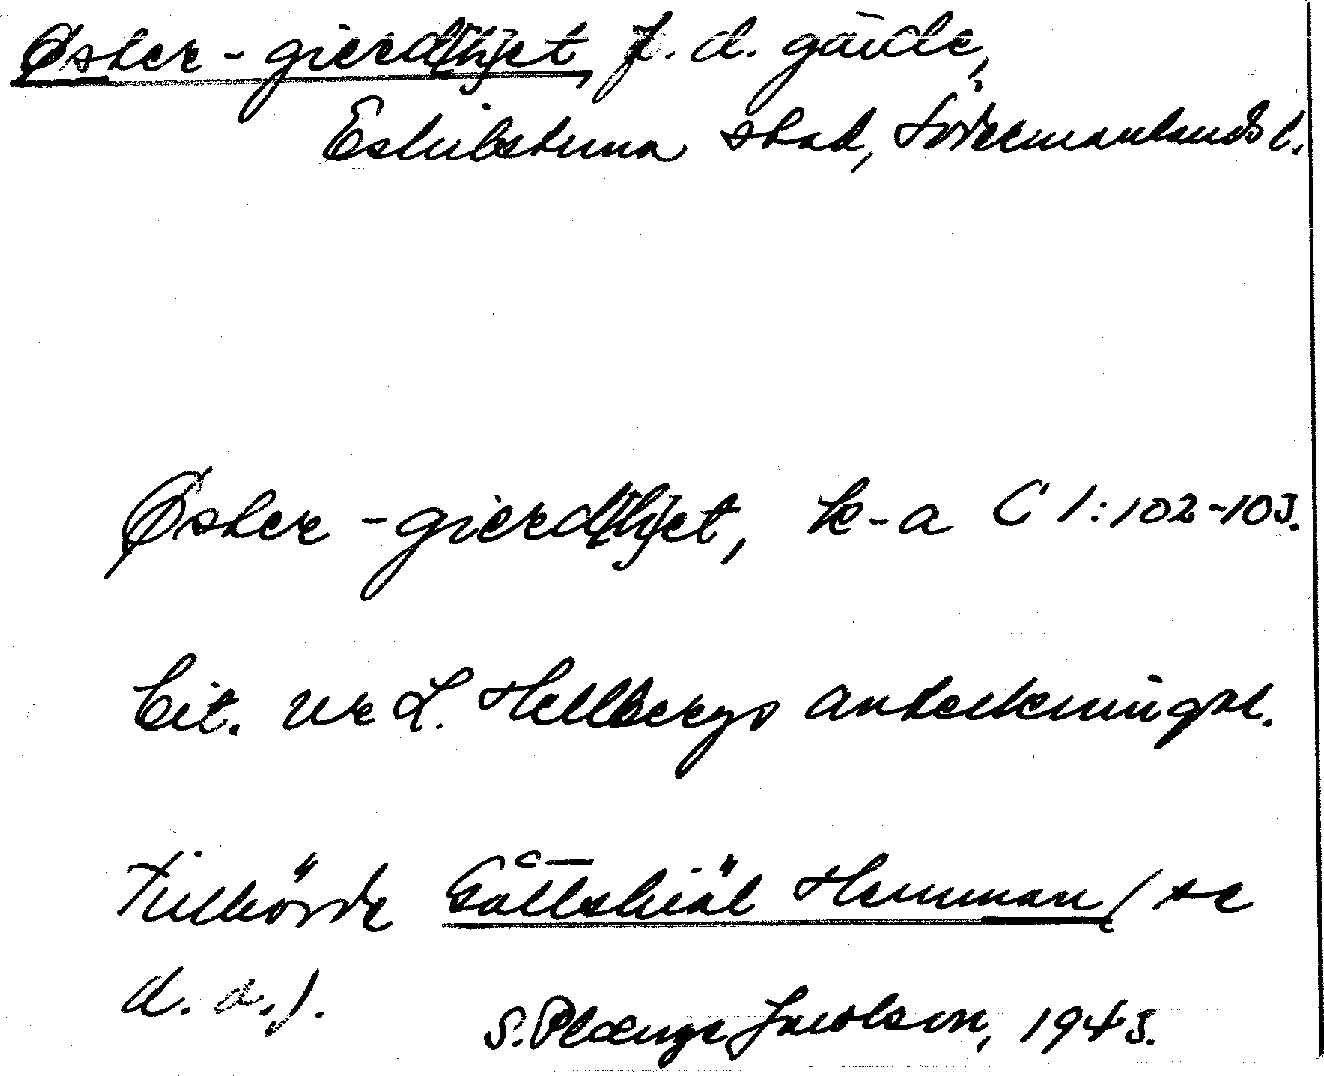 Øster-gierd(h)et f. d. gärde,
Eskilstuna stad, Södermanlands l.
Øster-gierd(h)et, k-a C 1:102-103.
Cit. ur L. Hellbergs anteckningar.
Tillhörde Gåttskiäl Hemman (se
d. o.).
S. Plænge Jacobson, 1943.